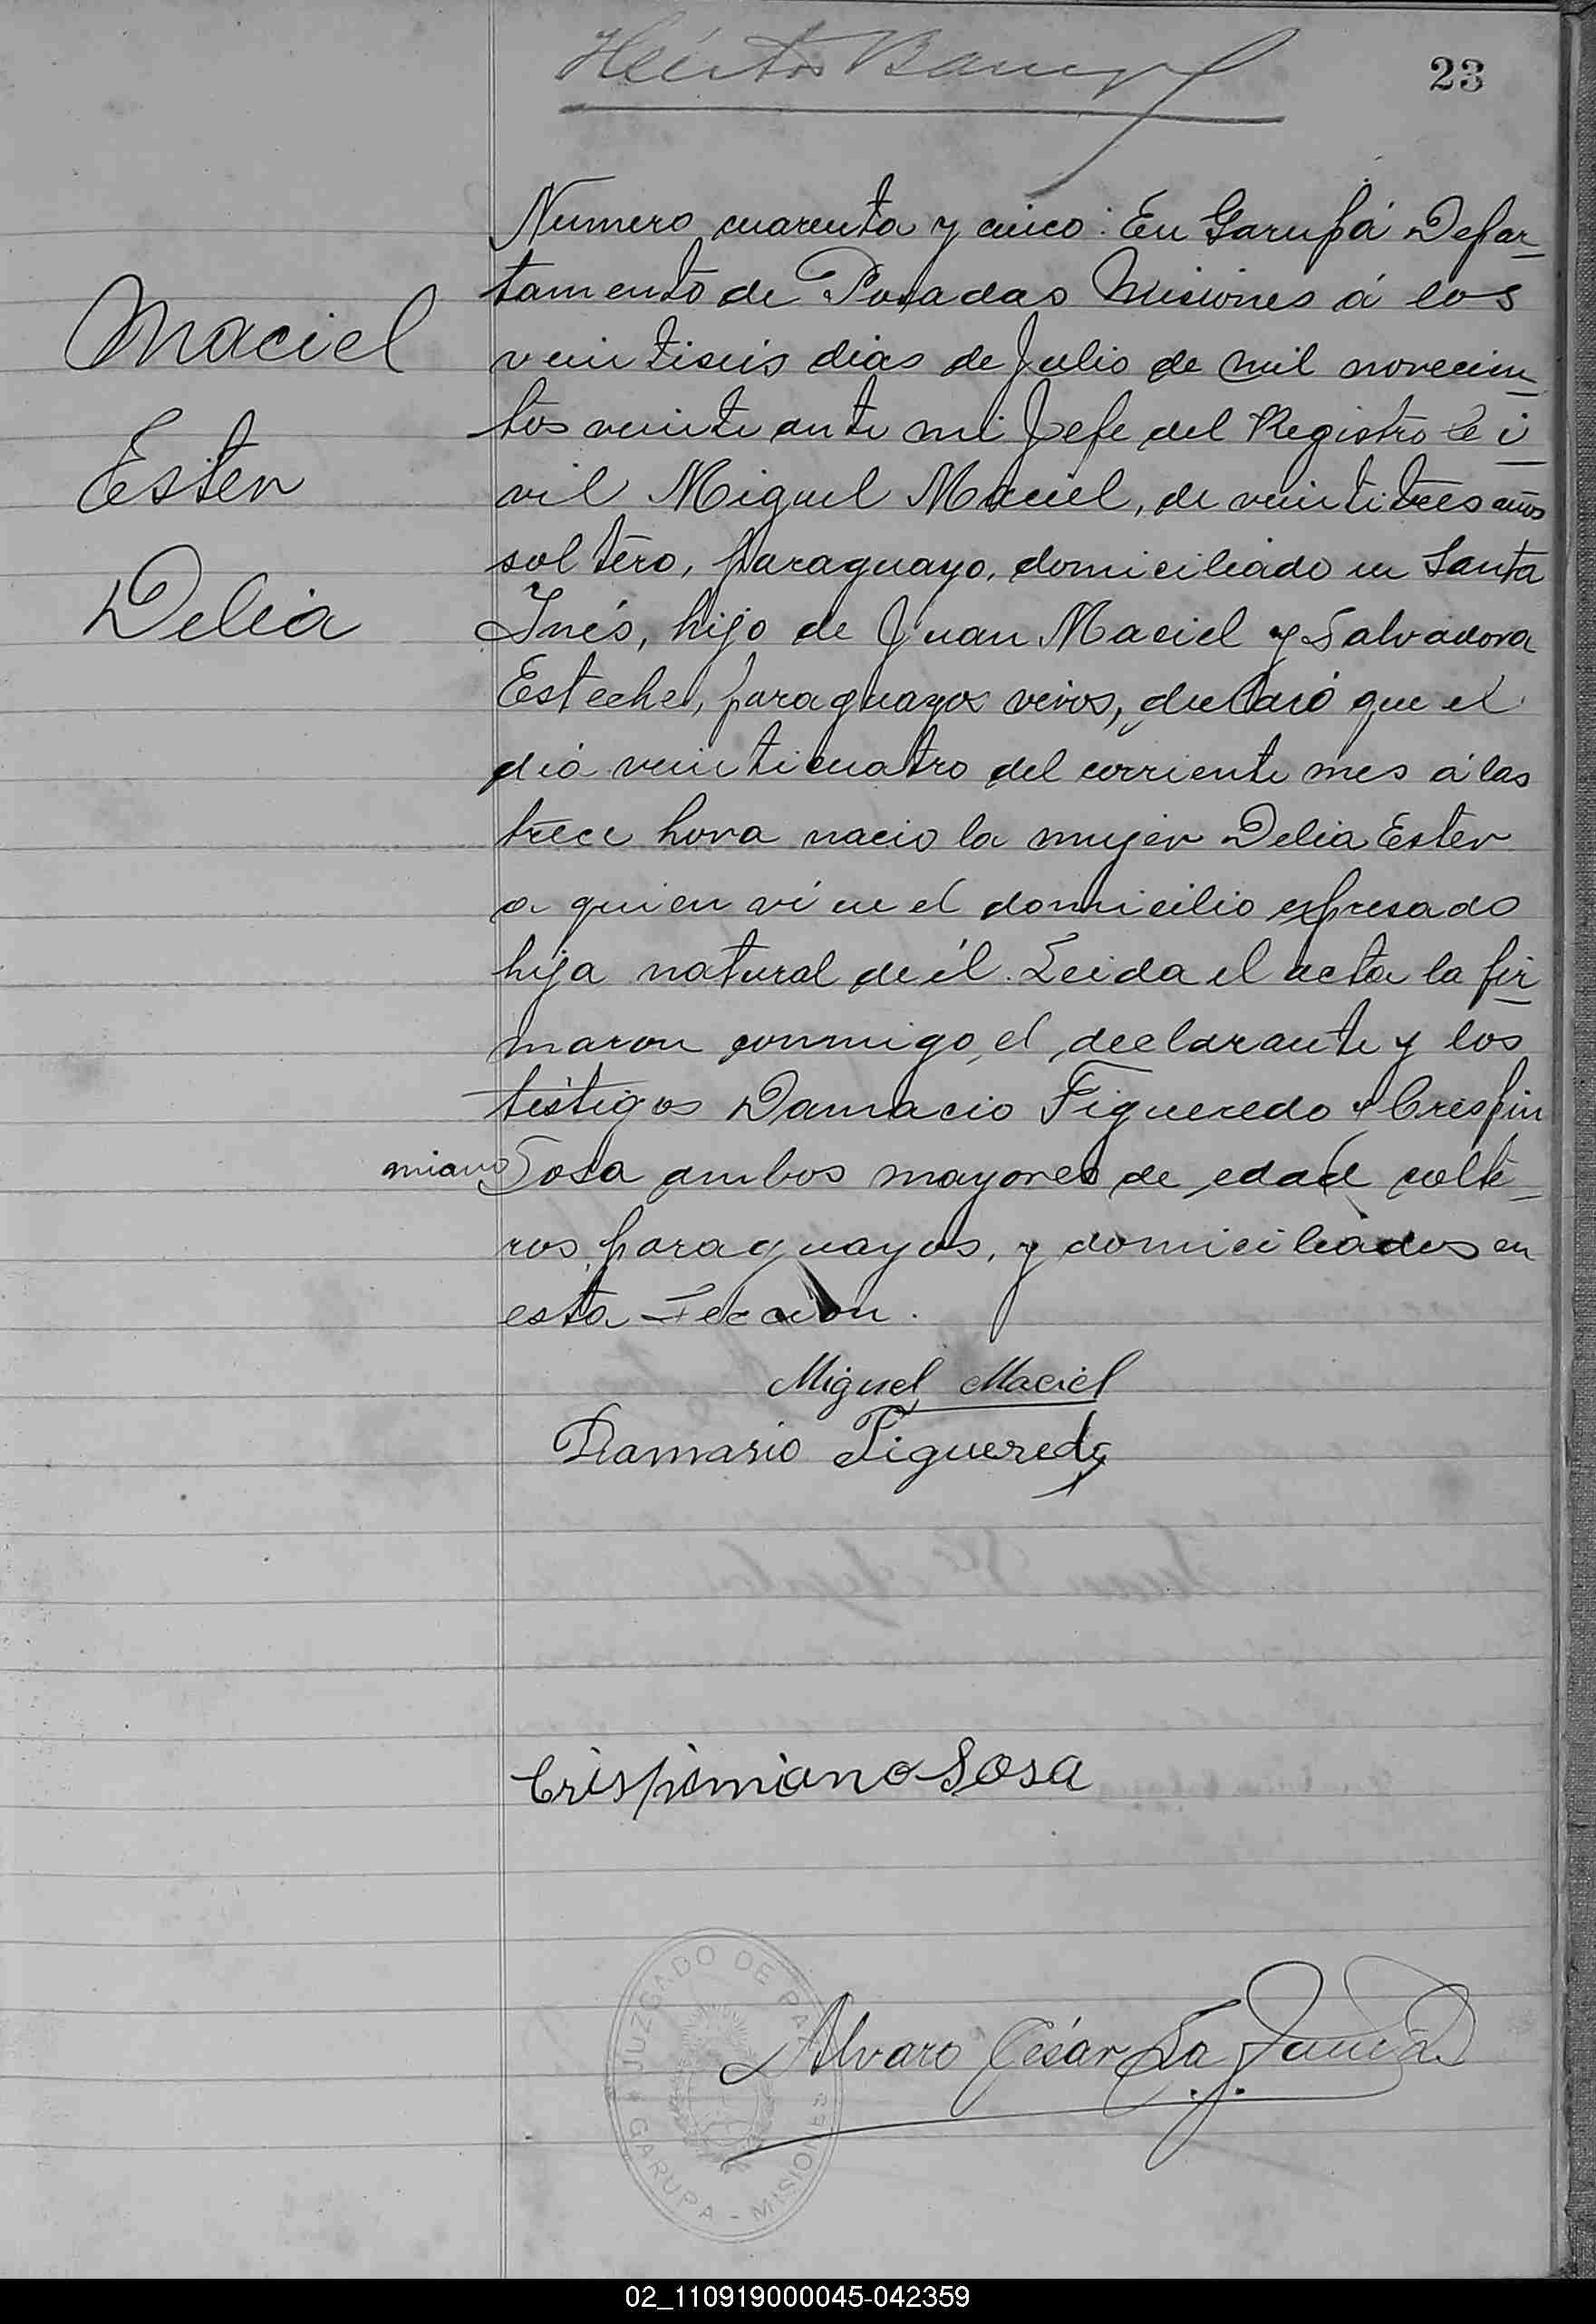 23
Numero cuarenta y cinco: En Garupá Depar-
tamento de Posadas Misiones á los
Maciel
veintiseis dias de Julio de mil novecien-
tos veinte ante mi Jefe del Registro Ci-
Ester
vil Miguel Maciel, de veintitres años
soltero, paraguayo, domiciliado en Santa
Delia
Inés, hijo de Juan Maciel y Salvadora
Esteche, paraguayos vivos, declaró que el
dia veinticuatro del corriente mes á las
trece hora nacio la mujer Delia Ester
a quien ví en el domicilio expresado
hija natural de él. Leida el acta la fir-
maron conmigo, el declarante y los
testigos Damacio Figueredo y Crespin
miano Sosa ambos mayores de edad solte-
ros, paraguayos, y domiciliados en
esta Seccion.
Miguel Maciel
Damasio Figueredo
Crispimiano Sosa
JUZGADO DE PAZ
GARUPA - MISIONES
Alvaro César
02_110919000045-042359